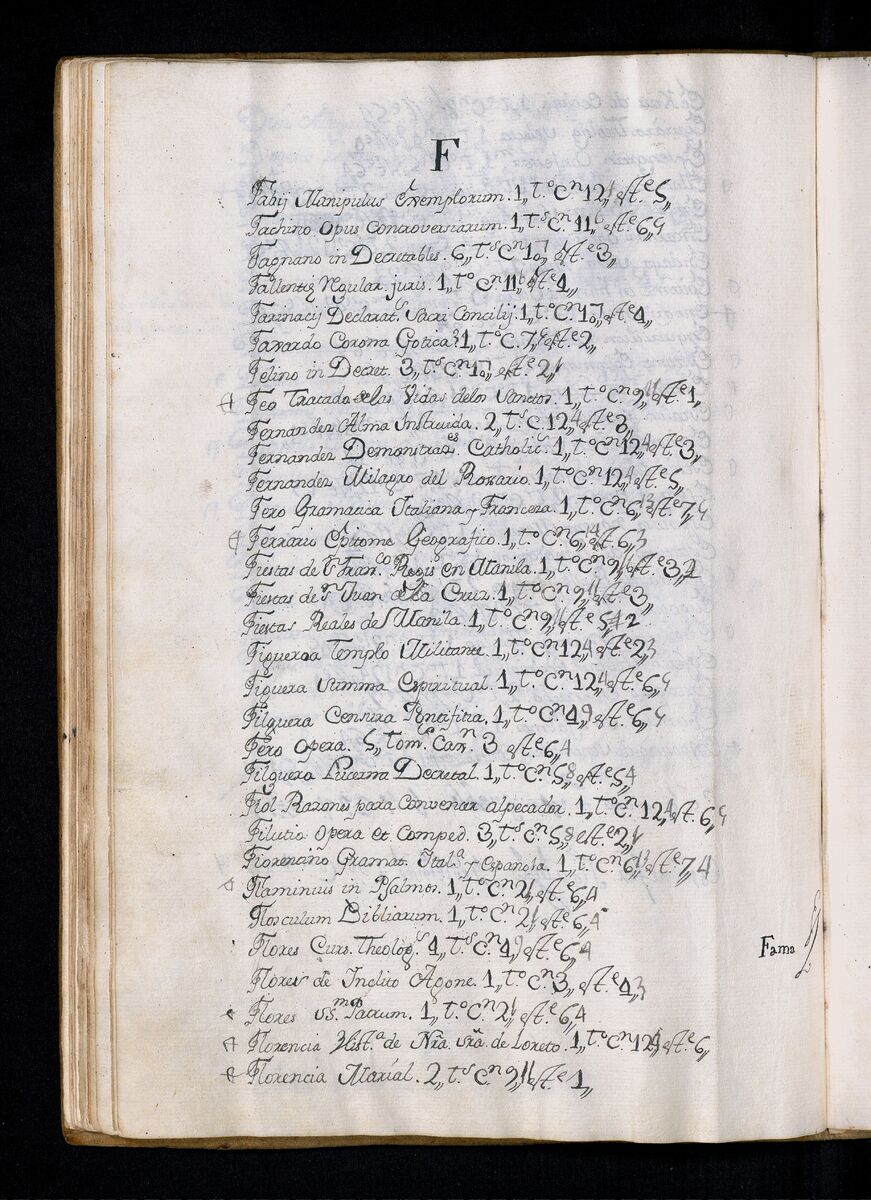 F
Fabij Manipulus Exemplorum. 1,, t.º C.n 12, est.e 5,,
Fachino Opus Controversiarum. 1,, t.s C.n 11, est.e 6,,
Fagnano in Decretables. 6,, t.s C.n 10, est.e 3,,
Fallentiȩ Regular. juris. 1,, t.º C.n 11, est.e 4,,
Farinacij Declarat.s Sacri Concilij. 1,, t.º C.n 10, est.e 4,,
Faxardo Corona Gotica. 1,, t.º C. 7, est.e 2,,
Felino in Decret. 3,, t.s C.n 10, est.e 2,,
Feo Tratado de las Vidas delos Sanctos. 1,, t.º C.n 9, est.e 1,,
Fernandez Alma Instruida. 2,, t.s C. 12, est.e 3,,
Fernandez Demonstraz.es Catholic.s 1,, t.º C.n 12, est.e 3,,
Fernandez Milagro del Rossario. 1,, t.º C.n 12, est.e 5,,
Fero Gramatica Italiana y Francesa. 1,, t.º C.n 6, est.e 7,,
Ferrario Epitome Geografico. 1,, t.º C.n 6, est. 6,,
Fiestas de S.n Fran.co Regis en Manila. 1,, t.º C.n 9, est.e 3,,
Fiestas de S.n Juan de la Cruz. 1,, t.º C.n 9, est.e 3,,
Fiestas Reales de Manila. 1,, t.º C.n 9, est.e 2
Figueroa Templo Militante. 1,, t.º C.n 12, est.e 2,,
Figuera Summa Espiritual. 1,, t.º C.n 12, est.e 6,,
Filguera Censura Pontifitia. 1,, t.º C.n 4, est.e 6,,
Fero Opera. 5,, tom.s Can.n 3 est.e 6,,
Filguera Lucerna Decretal. 1,, t.º C.n 5, est.e 5,,
Fiol Razones para Convencer al pecador. 1,, t.º C.n 12, est. 6,,
Filutio Opera et Comped. 3,, t.s C.n 5, est.e 2,,
Fiorentino Gramat. Ital.a y Española. 1,, t.º C.n 6, est.e 7,,
Flaminius in Psalmos. 1,, t.º C.n 2, est.e 6,,
Flosculum Bibliarum. 1,, t.º C.n 2, est.e 6,,
Flores Curs. Theolog.s 4,, t.s C.n 4, est.e 6,,
Flores de Inclito Agone. 1,, t.º C.n 3,, est.e 4,,
Flores SS.m Patrum. 1,, t.º C.n 2, est.e 6,,
Florencia Hist.a de Nra. Sra. de Loreto. 1,, t.º C.n 12, est.e 6,,
Florencia Marial. 2,, t.s C.n 9, est.e 1,,
Fama